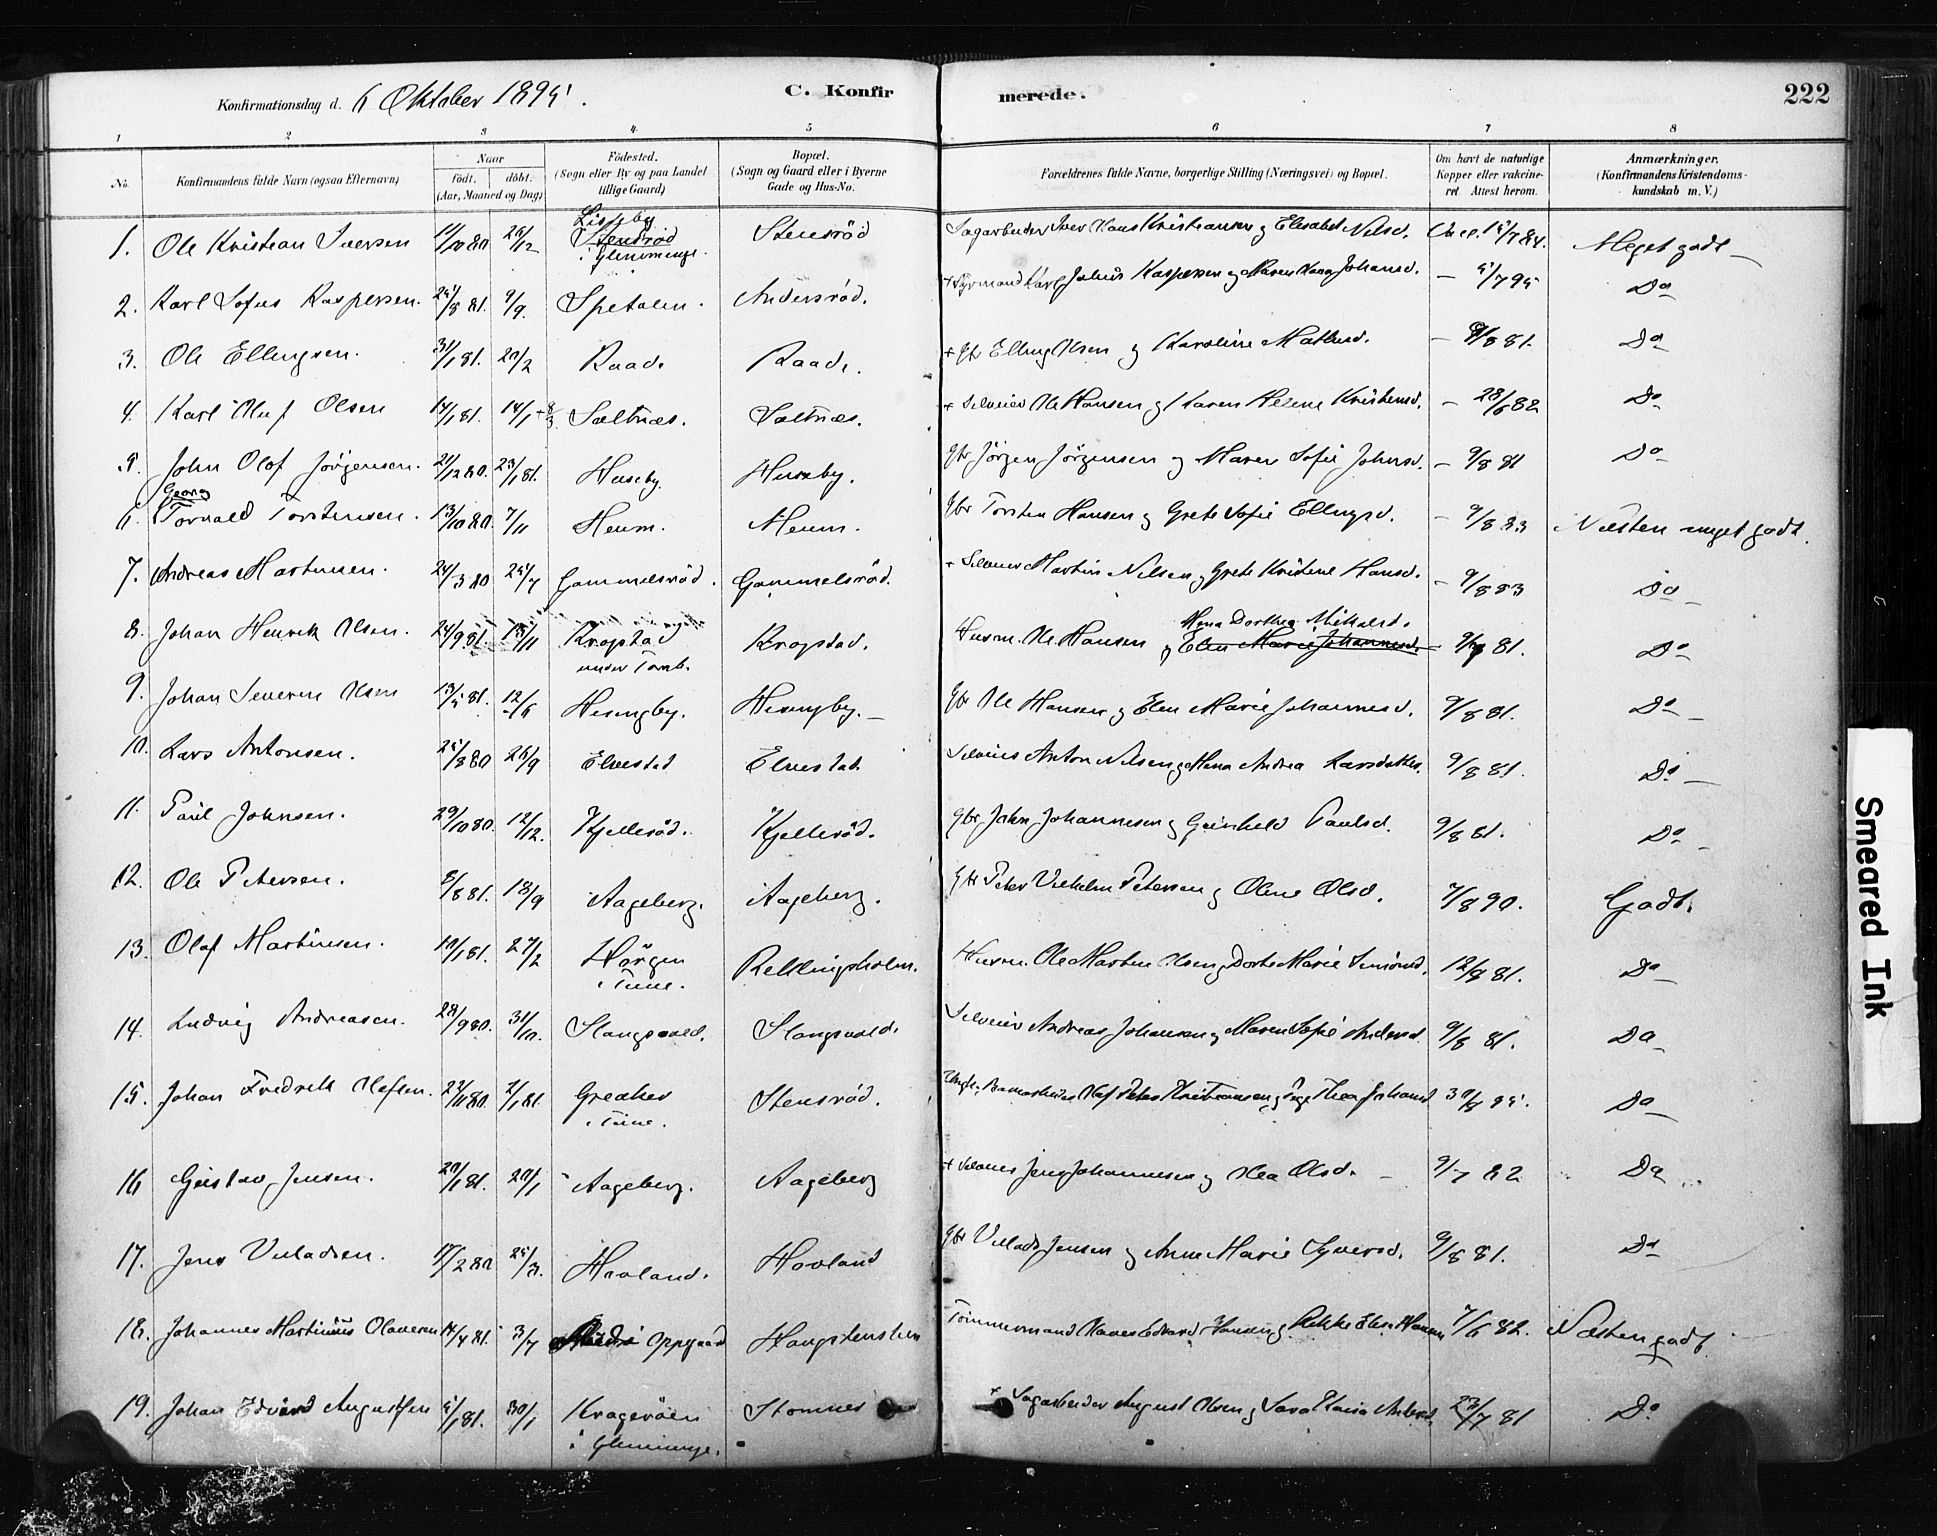 Konfirmationsdag d. 6 Oktober 1895.
C. Konfirmerede.
222
1 2 3 4 5 6 7 8
No.
Konfirmandens fulde Navn (ogsaa Efternavn)
Naar
födt. döbt.
(Aar, Maaned og Dag)
Födested.
(Sogn eller By og paa Landet
tillige Gaard)
Bopæl.
(Sogn og Gaard eller i Byerne
Gade og Hus-No.
Forældrenes fulde Navne, borgerlige Stilling (Næringsvei) og Bopæl.
Om havt de naturlige
Kopper eller vakcine-
ret. Attest herom.
Anmærkninger.
(Konfirmandens Kristendoms-
kundskab m. V.)
1. Ole Kristian Iversen 11/10 80 26/12 Lisleby Stensröd i Glemminge. Stensröd Sagarbeider Iver Hans Kristiansen og Elisabet Nilsd. Meget godt
2. Karl Sofus Kaspersen. 25/8 81. 9/9. Spetalen. Andersröd. Julius Kaspersen og Maren Johansd. – 5/7 95 Do
3. Ole Ellingsen. 31/1 81. 20/2 Raade Raade. + Gbr Elling Olsen og Karoline Mathisd. – 9/8 81. Do
4. Karl Oluf Olsen 14/1 81. 14/1 + 8/3 Saltnæs. Saltnæs. + Selveier Ole Hansen og Karen Helene Kristensd. – 28/6 82 Do
5. John Olaf Jörgensen. 21/12 80. 23/1 81. Huseby. Huseby. Gbr Jörgen Jörgensen og Maren Sofie Johnsd. – 9/8 81 Do
6. Georg Torvald Torstensen. 13/10 80. 7/11 Heum. Heum. Gbr Torsten Hansen og Grete Sofie Ellingsd. – 9/8 83 Næsten meget godt.
7. Andreas Martinsen. 24/3 80 25/7 Gammelsröd. Gammelsröd. + Selveier Martin Nilsen og Grete Kristine Hansd. – 9/8 83 Do
8. Johan Henrik Olsen. 24/9 81. 13/11 Kropstad under Tomb. Kropstad. Husm. Ole Hansen og Elen Marie Johannesd. Dorthea Mikelsd. 81. Do
9. Johan Severin Olsen 13/5 81. 12/6 Hesngby. Hesngby. Gbr Ole Hansen og Elen Marie Johannesd. 9/8 81. Do
10. Lars Antonsen. 25/8 80 26/9 Elvestad Elvestad. Selveier Anton Nilsen og Andrea Larsdatter. 9/8 81. Do
11. Paul Johnsen. 29/10 80. 12/12. Kjelleröd. Kjelleröd. Gbr John Johannesen og Gunhild Paulsd. 9/8 81. Do
12. Ole Petersen. 8/8 81. 18/9 Aageberg. Aageberg. Gbr Peter Vilhelm Petersen og Oline Olsd. 7/8 90. Godt.
13. Olaf Martinsen. 10/1 81. 27/2 Hörgen i Tune. Rekkingsholm. Husm. Ole Martin Olsen og Dorte Marie Simonsd. 12/8 81. Do
14. Ludvig Andreasen. 28/9 80. 31/10. Slangsvold. Slangsvold. Selveier Andreas Johansen og Maren Sofie Andersd. 9/8 81. Do
15. Johan Fredrik Olafsen. 22/11 80. 2/1 81. Greaker i Tune. Stensröd. Olaf Peter Kristiansen og Thea Johansd 30/8 95. Do
16 Gustav Jensen. 20/1 81. 20/1 Aageberg. Aageberg + Selveier Jens Johannesen og Olea Olsd. 9/7 82 Do
17. Jens Villadsen. 17/2 80 25/3. Hovland. Hovland Gbr Villads Jensen og Anne Marie Syversd. 9/8 81. Do
18. Johannes Martinius Olavesen 14/4 81. 3/7 Oppgaard Haugstensten Tömmermand Edvard Hansen 7/6 82. Næsten godt
19. Johan Edvard Augustsen 5/1 81. 30/1 Krageröen i Glemminge. Stomnes + Sagarbeider August Olsen og Sara Andersd. 23/7 81 Do
Smeared Ink